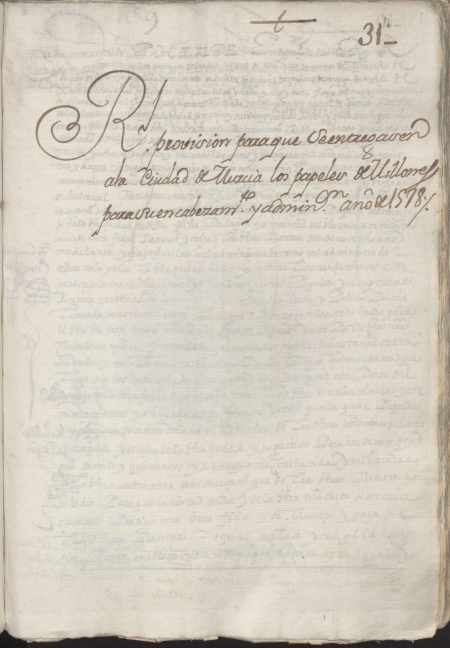 31
Rl. provision para que se entreguen
a la Ciudad de Murcia los papeles de Millones
para su encabezamto. y adminon. año de 1578